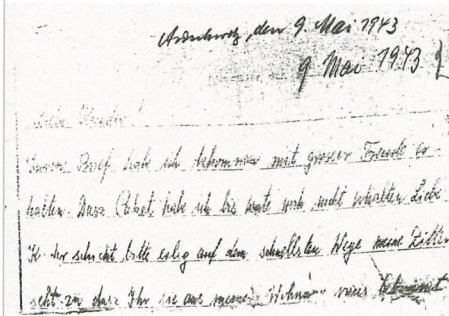 Auschwitz, den 9. Mai 1943
9 Mai 1943
Liebe Kinder!
Brief habe ich bekommen mit grosser Freude er-
halten. Dass Paket habe ich bis heute noch nicht erhalten Liebe
K. Ihr schickt bitte eilig auf dem schnellsten Wege meine
seht zu dass Ihr sie aus meiner bekommt